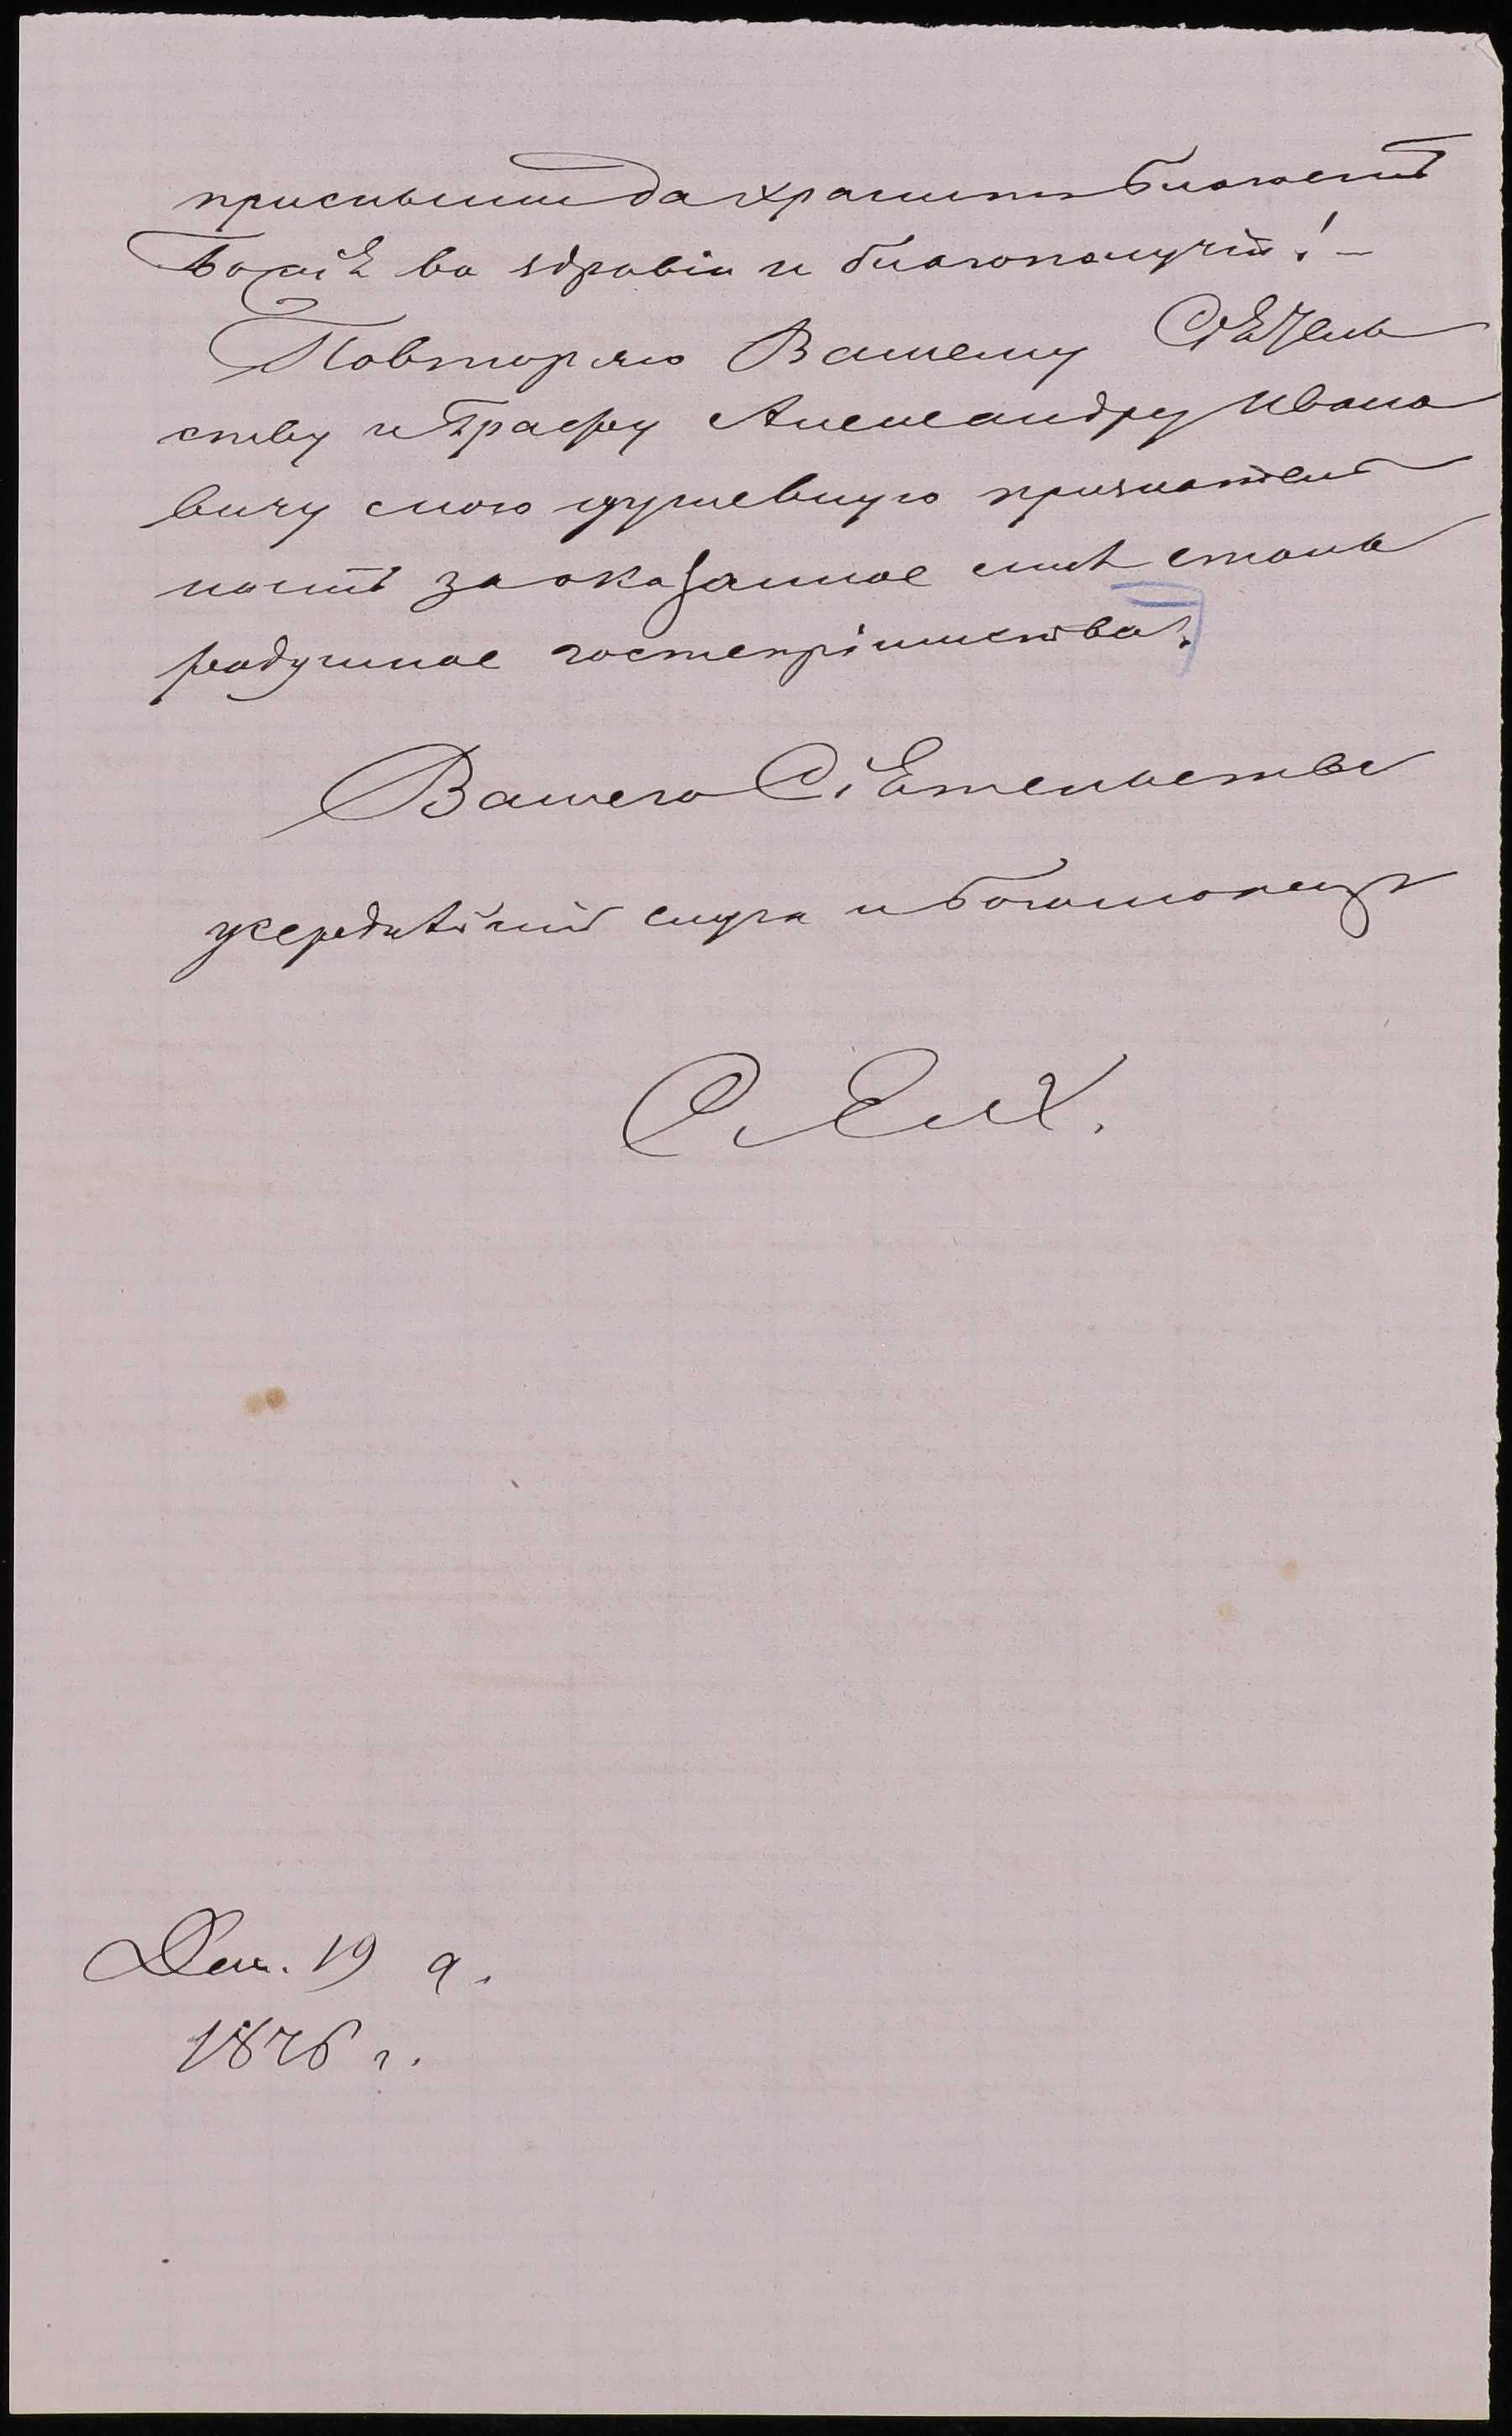 присными да хранитъ благость
Божія во здравіи и благополучіи! —
Повторяю Вашему Сіятель
ству и Графу Александру Ивано
вичу мою душевную признатель
ность за оказанное мнѣ столь
радушное гостепріимство.
Вашего Сіятельства
усерднѣйшій слуга и богомолецъ
С. Е. М. Х.
Дек. 19 д.
1876 г.